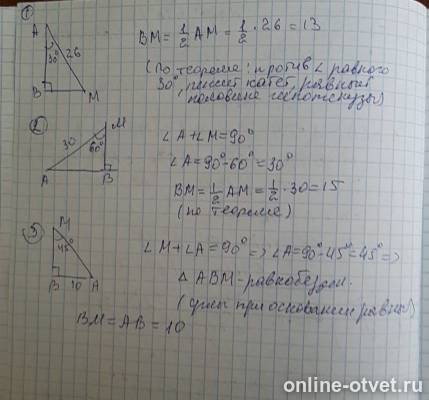 ①
A
30°
26
B
M
BM = 1/2 AM = 1/2 · 26 = 13
(По теореме: против ∠ равного
30°, лежит катет, равный
половине гипотенузы)
②
M
30
60°
A
B
∠A + ∠M = 90°
∠A = 90° - 60° = 30°
BM = 1/2 AM = 1/2 · 30 = 15
(по теореме)
③
M
45°
B 10 A
∠M + ∠A = 90° => ∠A = 90° - 45° = 45° =>
△ ABM - равнобедр.
(углы при основании равны)
BM = AB = 10
online-otvet.ru